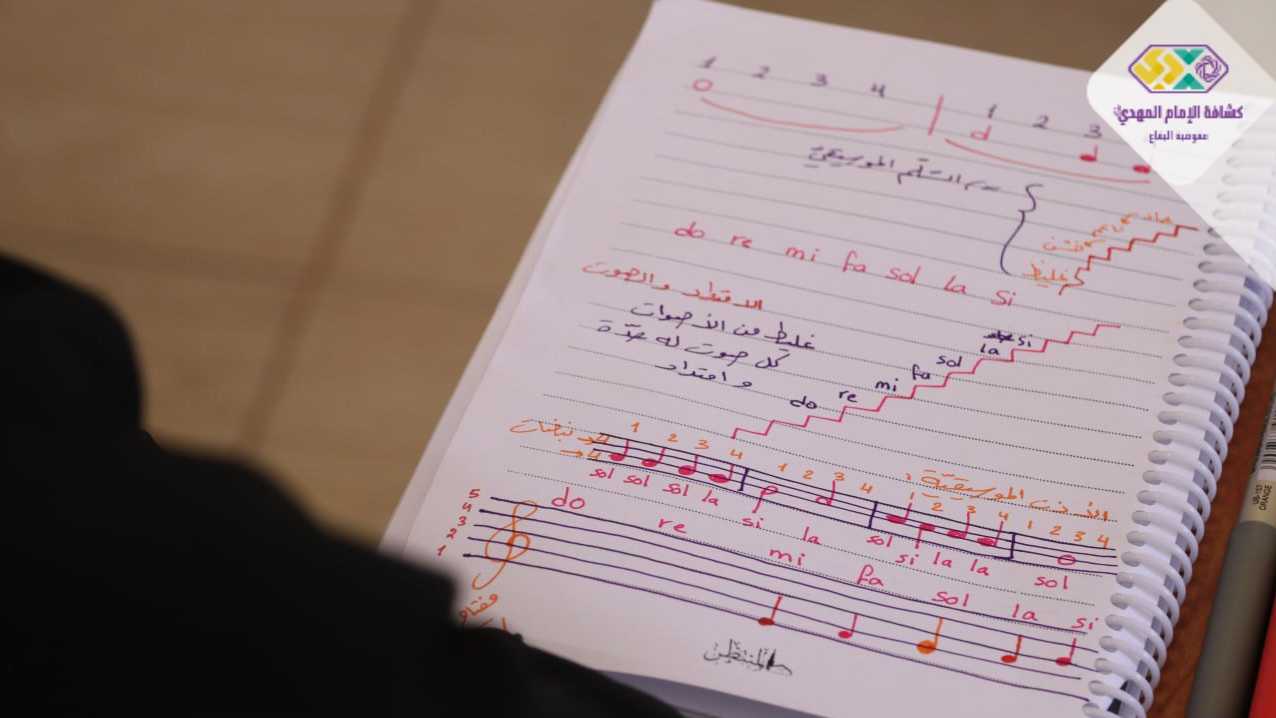 كشافة الإمام المهدي
مفوضية البقاع
1 2 3 4 1 2 3
السلّم الموسيقي
غليظ
do re mi fa sol la si
الامتداد والصوت
غليظ من الأصوات
كل صوت له حدّة
و امتداد
do re mi fa sol la si
نبضات
4
4
1 2 3 4 1 2 3 4 1 2 3 4 1 2 3 4
sol sol sol la si la sol si la la sol
الموسيقيّة
5
4
3
2
1
do re mi fa sol la si
مفتاح
UB-153
ORANGE